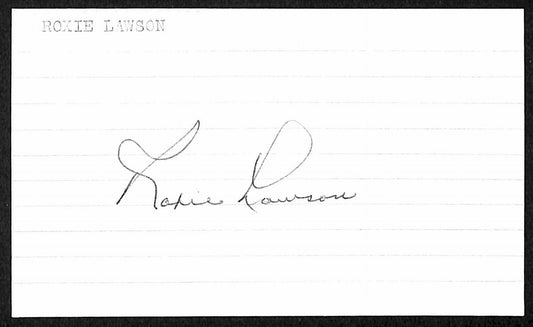 ROXIE LAWSON
Roxie Lawson